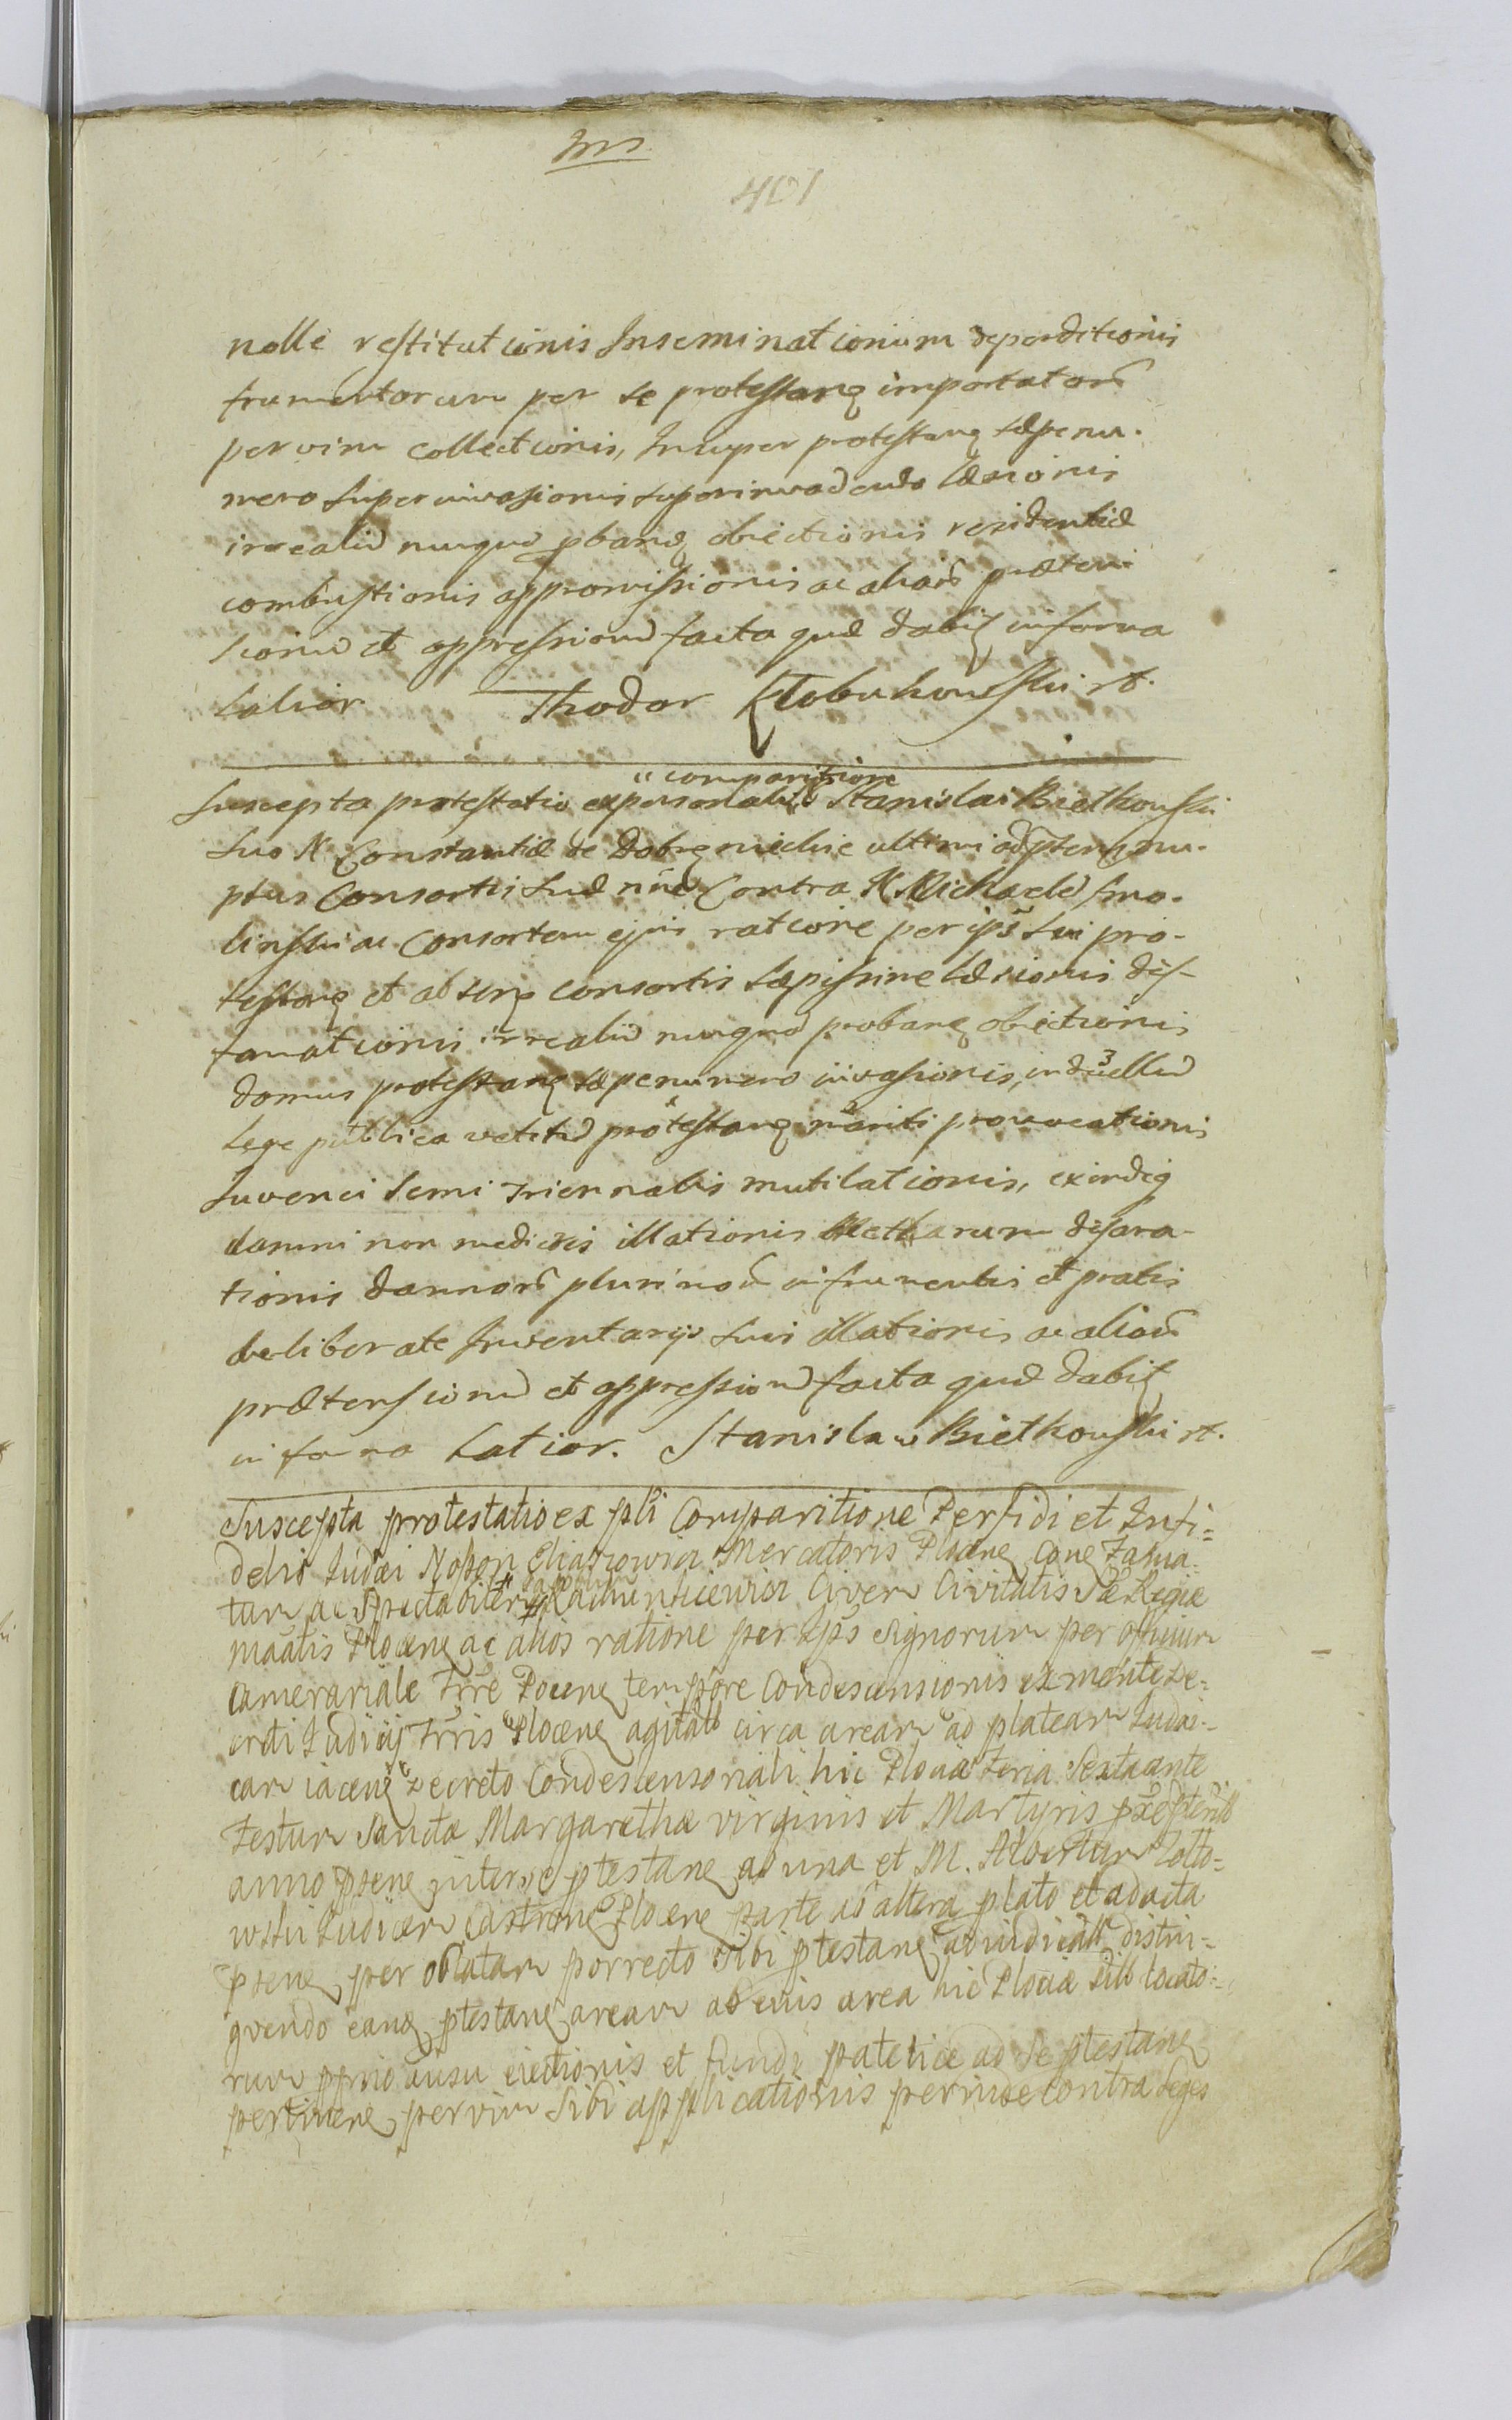 401
nolle restitutionis Inseminationum deperditionis
frumentorum per se protestanę importatorũ
per vim collectionis, Insuper protestanę sæpenu-
mero superinvasionis superinvadendo læsionis
irrealiũ nunquã pbanę obiectionis residentiæ
combustionis approvissionis ac aliarũ præten-
sionũ et oppressionũ facta quæ dabit in foro
latior. Thodor Kłobukowski st.
"comparitione
Suscepta protestatio ex personali Stanislai Bietkowski
suo N Constantiæ de ultimi adpsens nu-
ptus Consortis suæ nñe Contra N Michaelẽ Smo-
linski ac Consortem ejus ratione per ips sui pro-
testanę et absenę consortis sæpissime læsionis dif-
famationis irrealiũ nunquã probanę obiectionis
domus protestanę sæpenumero invasionis, in duellũ
Lege publica vetitũ protestanę mariti provocationis
Iuvenci semi triennalis mutilationis, exindeq
damni non mediocris illationis Metharum disara-
tionis damnorũ plurimorũ in frumentis et pratis
deliberate Inventarijs suis illationis ac aliarũ
prætensionũ et oppressionũ facta quæ dabit
in foro Latior. Stanislaw Bietkowski st.
Suscepta protestatio ex pli Comparitione Perfidi et Infi=
delis Iudæi Noson Eliaszowicz Mercatoris Plocenę Coñe Fama-
tum ac Spectabilem Civem Civitatis Sæ Regiæ
maatis Plocenę ac alios ratione per Ips Signorum per officium
Camerariale Trre Plocenę tempore Condescensionis ex mente De=
creti Iudicij Trris Plocenę agitatẽ circa aream ad plateam Iudai-
cam iacenę Decreto Condescensoriali hic Plociæ Feria Sexta ante
Festum Sanctæ Margarethæ virginis et Martyris pxe pteritẽ
anno psenę inter se ptestanę ab una et M. Albertum Zolto=
wski Iudicem Castrenę Plocenę parte ab altera plato et ad acta
psenę per oblatam porrecto sibi ptestanę adiudicatẽ distin=
guendo eanę ptestanę aream ab eius area hic Plociæ sitẽ locato=
rum pprio ausu eiectionis et fundi patetice ad se ptestanę
pertinenę per vim sibi applicationis perinde contra Leges